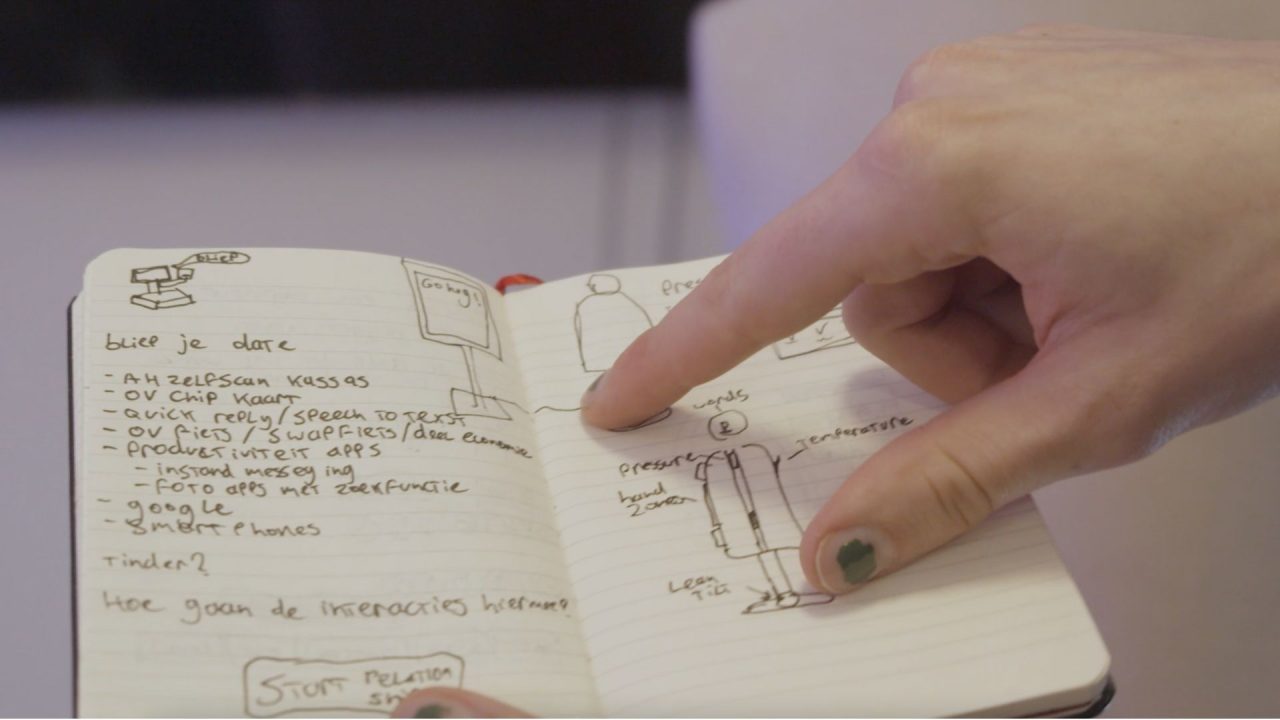 BLIEP
Go hug!
bliep je date
- AH zelfscan kassas
- OV chip kaart
- Quick reply/speech to text
- OV fiets/swapfiets/deel economie
- Productiviteit apps
- instand messeging
- foto apps met zoekfunctie
- google
- smartphones
Tinder?
Hoe gaan de interacties hiermee?
START RELATION
words
Temperature
pressure
hand
zones
Lean
Tilt